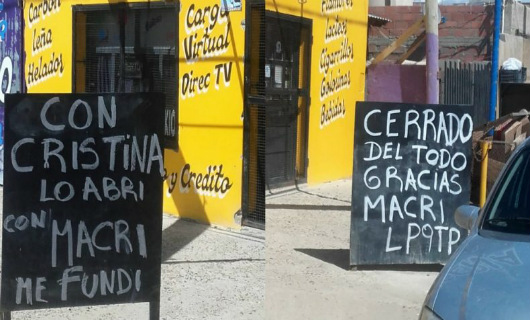 Carbon
Leña
Helados
Carga
Virtual
Direc TV
y Credito
CON
CRISTINA
LO ABRI
CON MACRI
ME FUNDI
Lacteos
Cigarrillos
Golosinas
Bebidas
CERRADO
DEL TODO
GRACIAS
MACRI
LPQTP